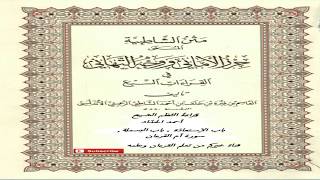 متن الشاطبية
المسمى
حرز الأماني ووجه التهاني
في
القراءات السبع
تأليف
القاسم بن فيره بن خلف بن أحمد الشاطبي الرعيني الأندلسي
أحمد
باب الاستعاذة ، باب البسملة ،
سورة أم القرآن
خيركم من تعلم القرءان وعلمه
Subscribe